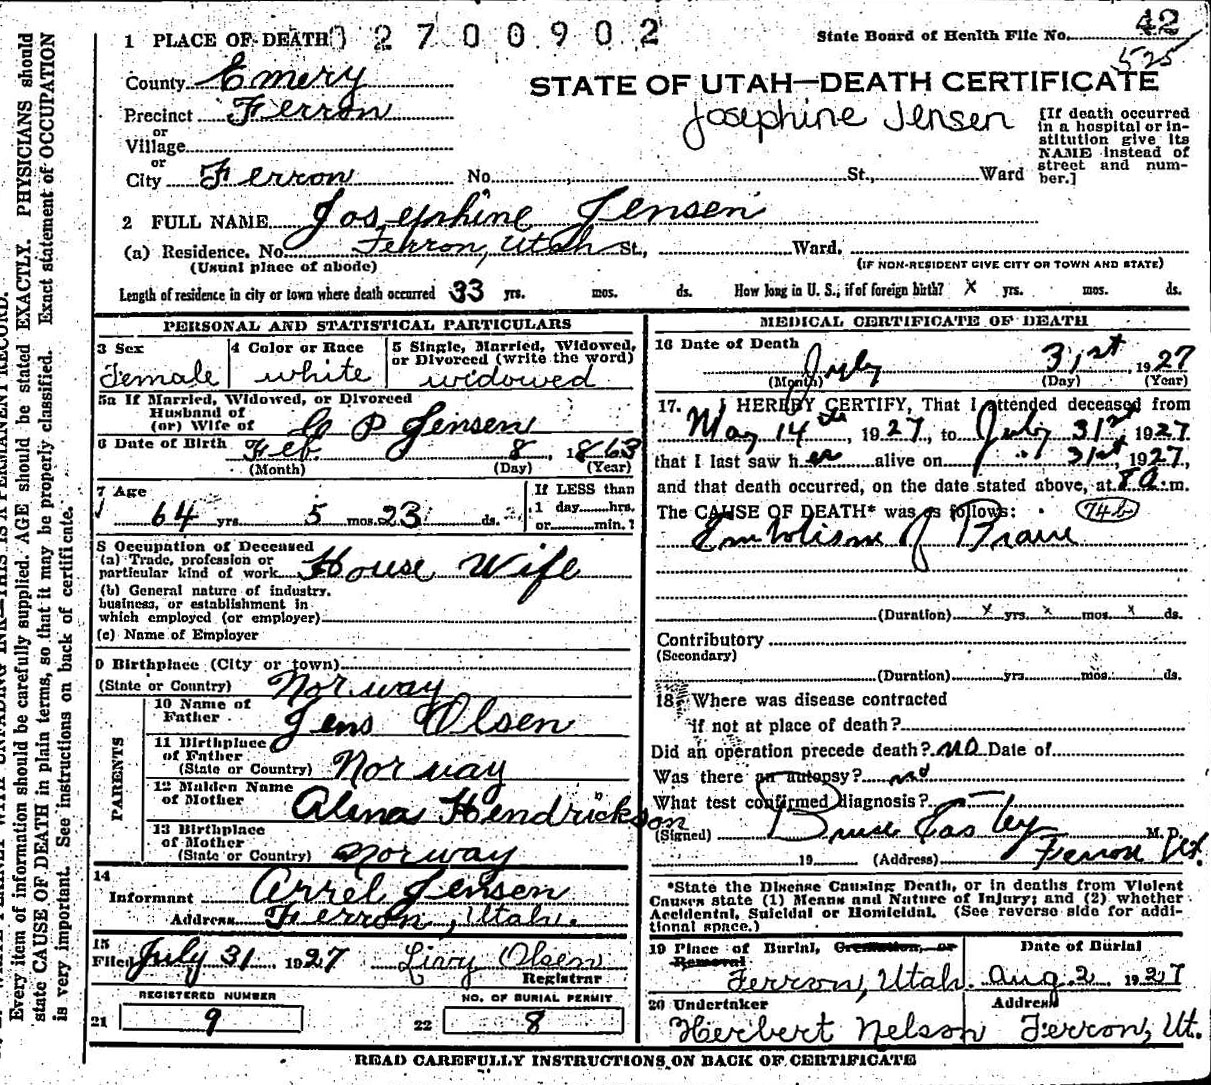 1 PLACE OF DEATH 02700902
State Board of Health File No. 42
525
County Emery
STATE OF UTAH—DEATH CERTIFICATE
Precinct Ferron
Josephine Jensen
or
Village
or
City Ferron No. St., Ward
[If death occurred
in a hospital or in-
stitution give its
NAME instead of
street and num-
ber.]
2 FULL NAME Josephine Jensen
(a) Residence. No. Ferron, Utah St., Ward.
(Usual place of abode)
(IF NON-RESIDENT GIVE CITY OR TOWN AND STATE)
Length of residence in city or town where death occurred 33 yrs. mos. ds. How long in U. S., if of foreign birth? x yrs. mos. ds.
PERSONAL AND STATISTICAL PARTICULARS
3 Sex
Female
4 Color or Race
white
5 Single, Married, Widowed,
or Divorced (write the word)
widowed
5a If Married, Widowed, or Divorced
Husband of
(or) Wife of C P Jensen
6 Date of Birth Feb. 8, 1863
(Month) (Day) (Year)
7 Age
64 yrs. 5 mos. 23 ds.
If LESS than
1 day....hrs.
or....min.?
8 Occupation of Deceased
(a) Trade, profession or
particular kind of work House Wife
(b) General nature of industry.
business, or establishment in
which employed (or employer)
(c) Name of Employer
9 Birthplace (City or town)
(State or Country) Norway
PARENTS
10 Name of
Father Jens Olsen
11 Birthplace
of Father
(State or Country) Norway
12 Maiden Name
of Mother Alena Hendrickson
13 Birthplace
of Mother
(State or Country) Norway
14
Informant Arrel Jensen
Address Ferron, Utah.
15
Filed July 31, 1927 Livy Olsen
Registrar
REGISTERED NUMBER
21 9
NO. OF BURIAL PERMIT
22 8
MEDICAL CERTIFICATE OF DEATH
16 Date of Death
July 31st 1927
(Month) (Day) (Year)
17. I HEREBY CERTIFY, That I attended deceased from
May 14th, 1927, to July 31st 1927
that I last saw her alive on " 31st, 1927,
and that death occurred, on the date stated above, at 8 a. m.
The CAUSE OF DEATH* was as follows: 74b
Embolism of Brain
(Duration) x yrs. x mos. x ds.
Contributory
(Secondary)
(Duration) yrs. mos. ds.
18 Where was disease contracted
if not at place of death?
Did an operation precede death? no Date of
Was there an autopsy? no
What test confirmed diagnosis? —
(Signed) Bruce Easley M. D.
19 (Address) Ferron Ut.
*State the Disease Causing Death, or in deaths from Violent
Causes state (1) Means and Nature of Injury; and (2) whether
Accidental, Suicidal or Homicidal. (See reverse side for addi-
tional space.)
19 Place of Burial, Cremation, or
Removal
Ferron, Utah.
Date of Burial
Aug. 2 1927
20 Undertaker
Herbert Nelson
Address
Ferron, Ut.
READ CAREFULLY INSTRUCTIONS ON BACK OF CERTIFICATE
THIS IS A PERMANENT RECORD.
Every item of information should be carefully supplied. AGE should be stated EXACTLY. PHYSICIANS should
state CAUSE OF DEATH in plain terms, so that it may be properly classified. Exact statement of OCCUPATION
is very important. See instructions on back of certificate.